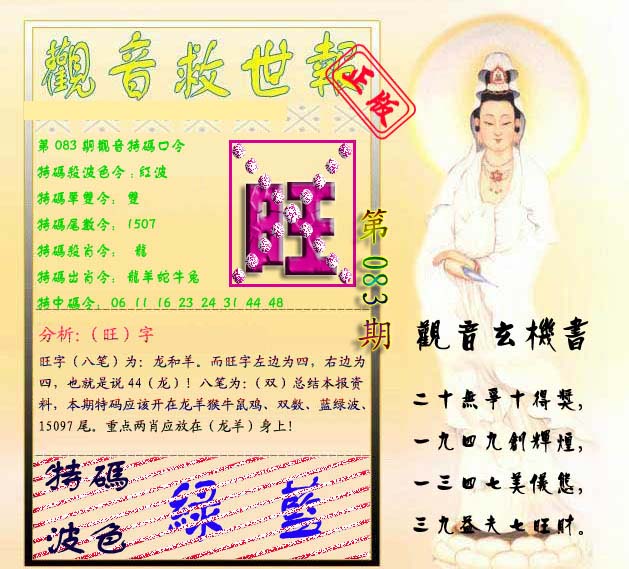 觀音救世報
正版
第083期觀音特碼口令
特碼殺波色令：紅波
特碼單雙令： 雙
特碼尾數令： 1507
特碼殺肖令： 龍
特碼出肖令： 龍羊蛇牛兔
特中碼令： 06 11 16 23 24 31 44 48
旺
第083期
分析:（旺）字
旺字（八笔）为：龙和羊。而旺字左边为四，右边为
四，也就是说44（龙）！八笔为：（双）总结本报资
料，本期特码应该开在龙羊猴牛鼠鸡、双数、蓝绿波、
15097尾。重点两肖应放在（龙羊）身上！
特碼
波色
綠 藍
觀音玄機書
二十無爭十得獎，
一九四九創輝煌，
一三四七美儀態，
三九益夫七旺財。